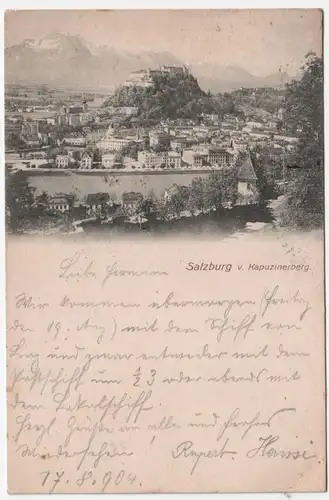 Salzburg v. Kapuzinerberg.
Liebe Hermann
Wir kommen übermorgen (Freitag
den 19. Aug) mit dem Schiff von
Linz und zwar entweder mit dem
Postschiff um ½ 3 oder abends mit
dem Lokalschiff.
Herzl. Grüße an alle und frohes
Wiedersehen Rupert. Hansi
17.8.904.